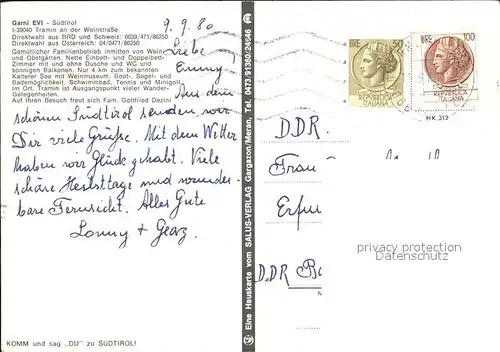 Garni EVI - Südtirol
I-39040 Tramin an der Weinstraße
Direktwahl aus BRD und Schweiz: 0039/471/86250
Direktwahl aus Österreich: 04/0471/86250
Gemütlicher Familienbetrieb inmitten von Wein-
und Obstgärten. Nette Einbett- und Doppelbett-
Zimmer mit und ohne Dusche und WC und
sonnigen Balkonen. Nur 4 km zum bekannten
Kalterer See mit Weinmuseum, Boot-, Segel- und
Bademöglichkeit, Schwimmbad, Tennis und Minigolf
im Ort. Tramin ist Ausgangspunkt vieler Wander-
Gelegenheiten.
Auf Ihren Besuch freut sich Fam. Gottfried Dezini
9.9.80
Liebe
Emmy
Aus dem
schönen Südtirol senden wir
Dir viele Grüße. Mit dem Wetter
haben wir Glück gehabt. Viele
schöne Herbsttage und wunder-
bare Fernsicht. Alles Gute
Lonny + Georg
KOMM und sag „DU" zu SÜDTIROL!
Eine Hauskarte vom SALUS-VERLAG Gargazon/Meran, Tel. 0473 91360/24646
LIRE
LIRE 100
REPUBBLICA
ITALIANA
REPUBBLICA
ITALIANA
HK 312
DDR.
Frau
Erfur
DDR
privacy protection
Datenschutz